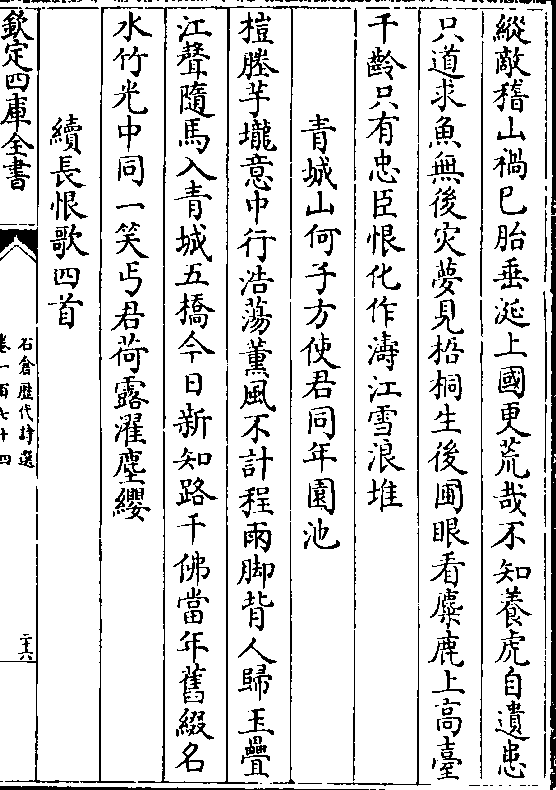 縱敵稽山禍已胎垂涎上國更荒哉不知養虎自遺患
只道求魚無後災夢見梧桐生後圃眼看麋鹿上高臺
千齡只有忠臣恨化作濤江雪浪堆
青城山何子方使君同年園池
榿塍芋壠意中行浩蕩薰風不計程雨脚背人歸玉疊
江聲隨馬入青城五橋今日新知路千佛當年舊綴名
水竹光中同一笑丐君荷露濯塵纓
續長恨歌四首
欽定四庫全書
石倉歴代詩選
卷一百七十四
二十六